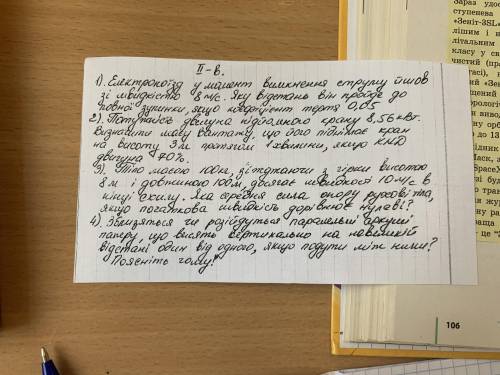 II-в.
1). Електропоїзд у момент вимкнення струму йшов
зі швидкістю 8 м/с. Яку відстань він пройде до
повної зупинки, якщо коефіцієнт тертя 0,05
2). Потужність двигуна підйомного крану 8,56 кВт.
Визначити масу вантажу, що його піднімає кран
на висоту 3м протягом 1 хвилини, якщо ККД
двигуна 70%.
3). Тіло масою 100кг, з'їжджаючи з гірки висотою
8м і довжиною 100м, досягає швидкості 10м/с в
кінці схилу. Яка середня сила опору рухові тіла,
якщо початкова швидкість дорівнює нулеві?
4). Зблизяться чи розійдуться паралельні аркуші
паперу, що висять вертикально на невеликій
відстані один від одного, якщо подути між ними?
Поясніть чому?
Зараз
ступенева
«Зеніт-3SL»
лішим і
літальним
класу у
чистий
106